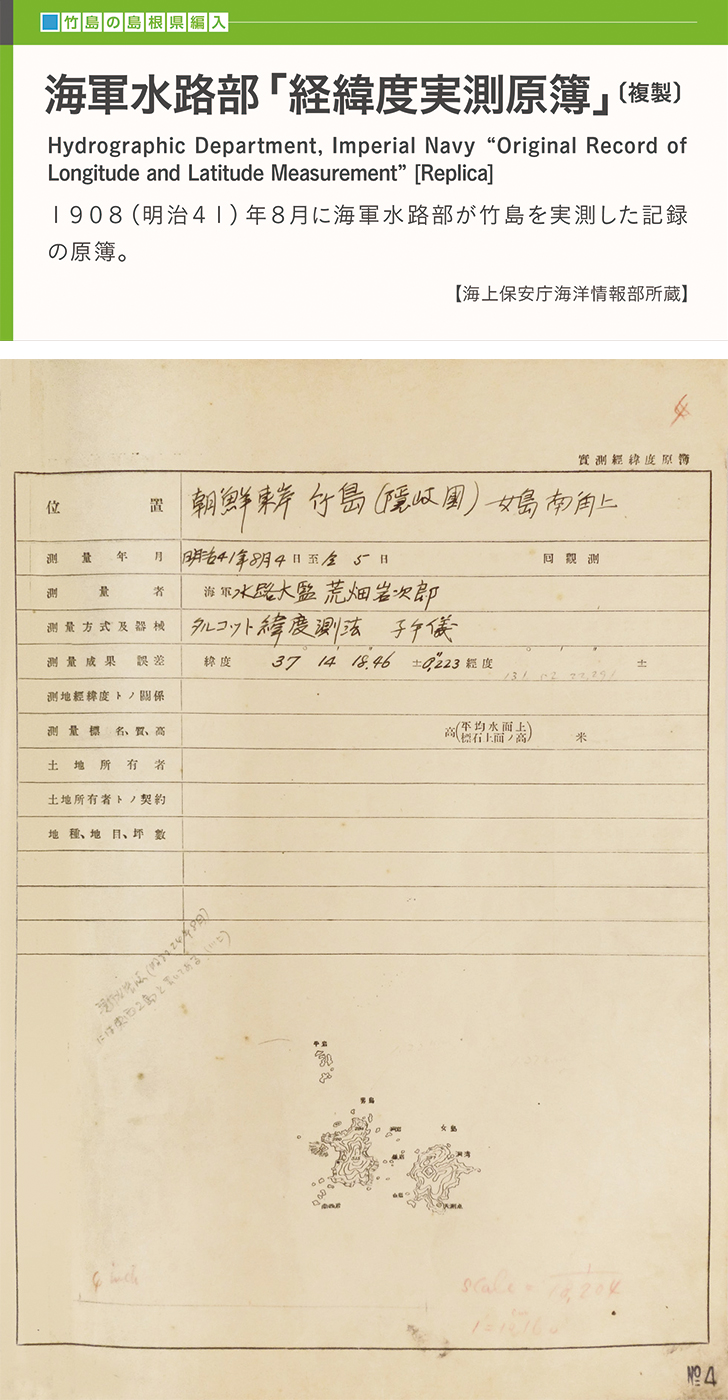 竹島の島根県編入
海軍水路部「経緯度実測原簿」〔複製〕
Hydrographic Department, Imperial Navy “Original Record of
Longitude and Latitude Measurement” [Replica]
1908（明治41）年8月に海軍水路部が竹島を実測した記録
の原簿。
【海上保安庁海洋情報部所蔵】
實測經緯度原簿
位置 朝鮮東岸 竹島(隱岐國) 女島南角上
測量年月 明治41年8月4日至仝5日 回觀測
測量者 海軍水路大監 荒畑岩次郎
測量方式及器械 タルコット緯度測法 子午儀
測量成果 誤差 緯度 37° 14′ 18″.46 ±0″.223 經度 ° ′ ″ ±
測地經緯度トノ關係
測量標 名、質、高 高(平均水面上 標石上面ノ高) 米
土地所有者
土地所有者トノ契約
地種、地目、坪數
平島
男島
女島
洞湾
天測点
4 inch
scale =
№4